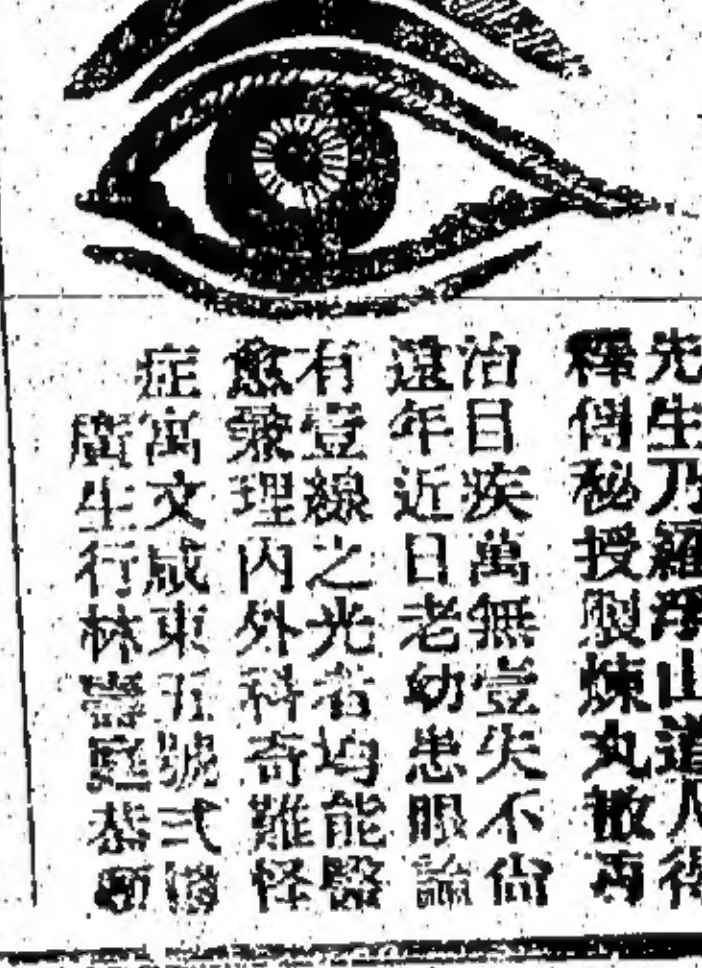 先生乃羅浮山道人得
釋傳秘授製煉丸散再
治目疾萬無壹失不倘
遠年近日老幼患眼論
有壹線之光者均能醫
愈兼理內外科奇難怪
症寓文咸東五號弍樓
廣生行林壽庭恭